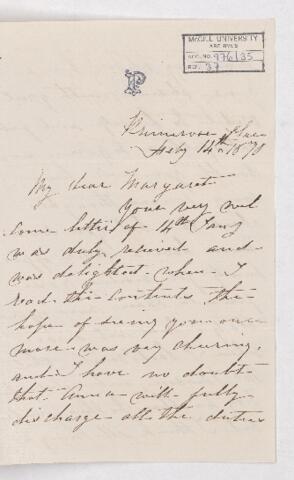 McGILL UNIVERSITY
ARCHIVES
ACC. NO. 976/35
REF. 37
P
Primrose Place
Feby 14th 1870
My dear Margaret
Your very wel
come letter of 4th Jany
was duly received and
was delighted when I
read the contents the
hope of seeing you once
more was very cheering,
and I have no doubt
that Anna will fully
discharge all the duties